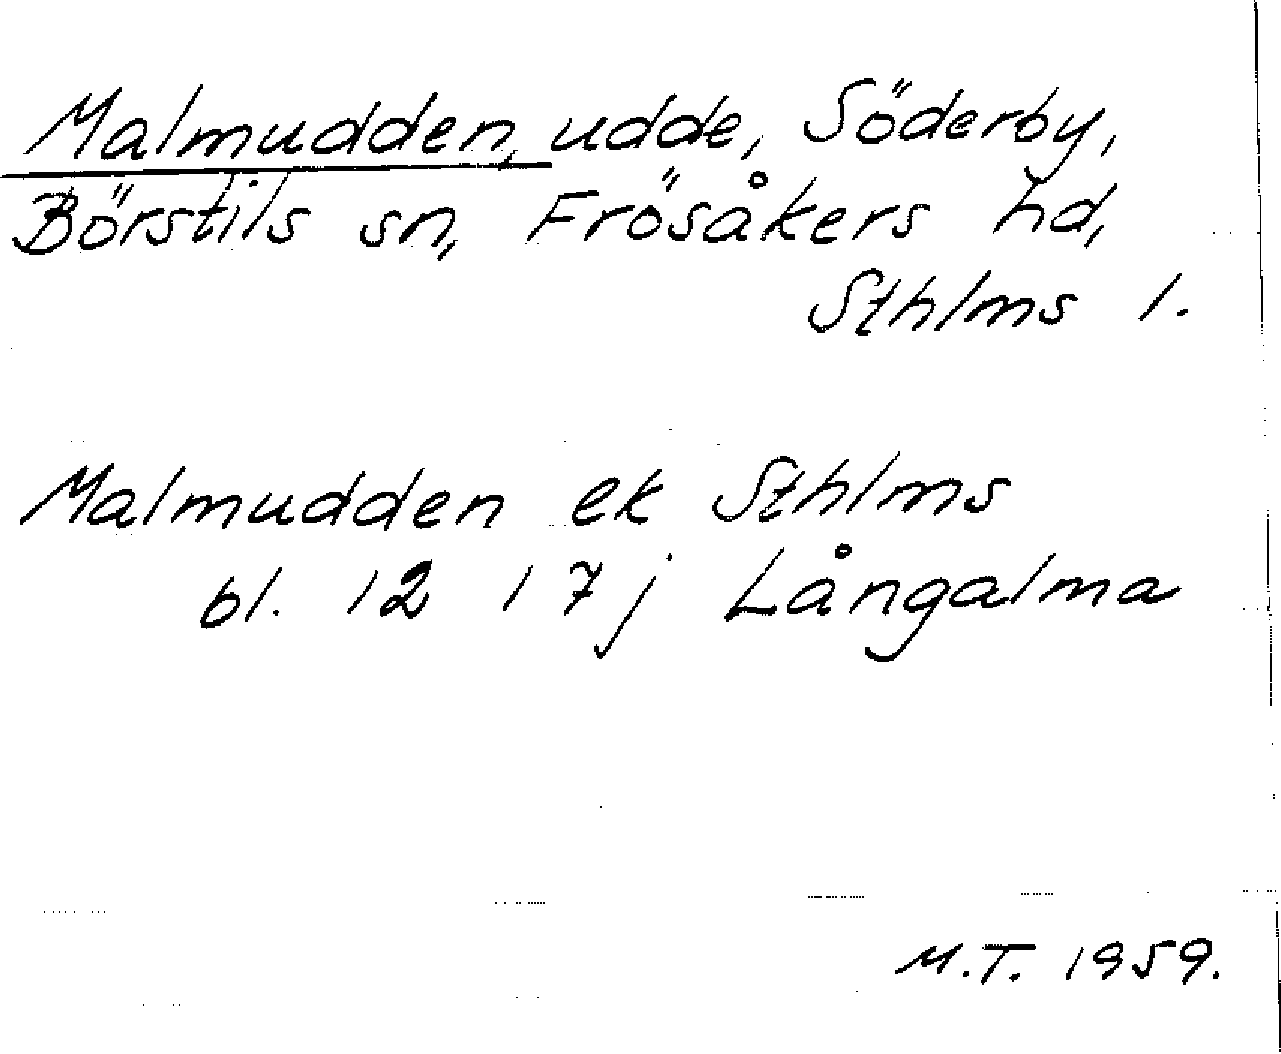 Malmudden, udde, Söderby,
Börstils sn, Frösåkers hd,
Sthlms l.
Malmudden ek Sthlms
bl. 12 17j Långalma
M.T. 1959.